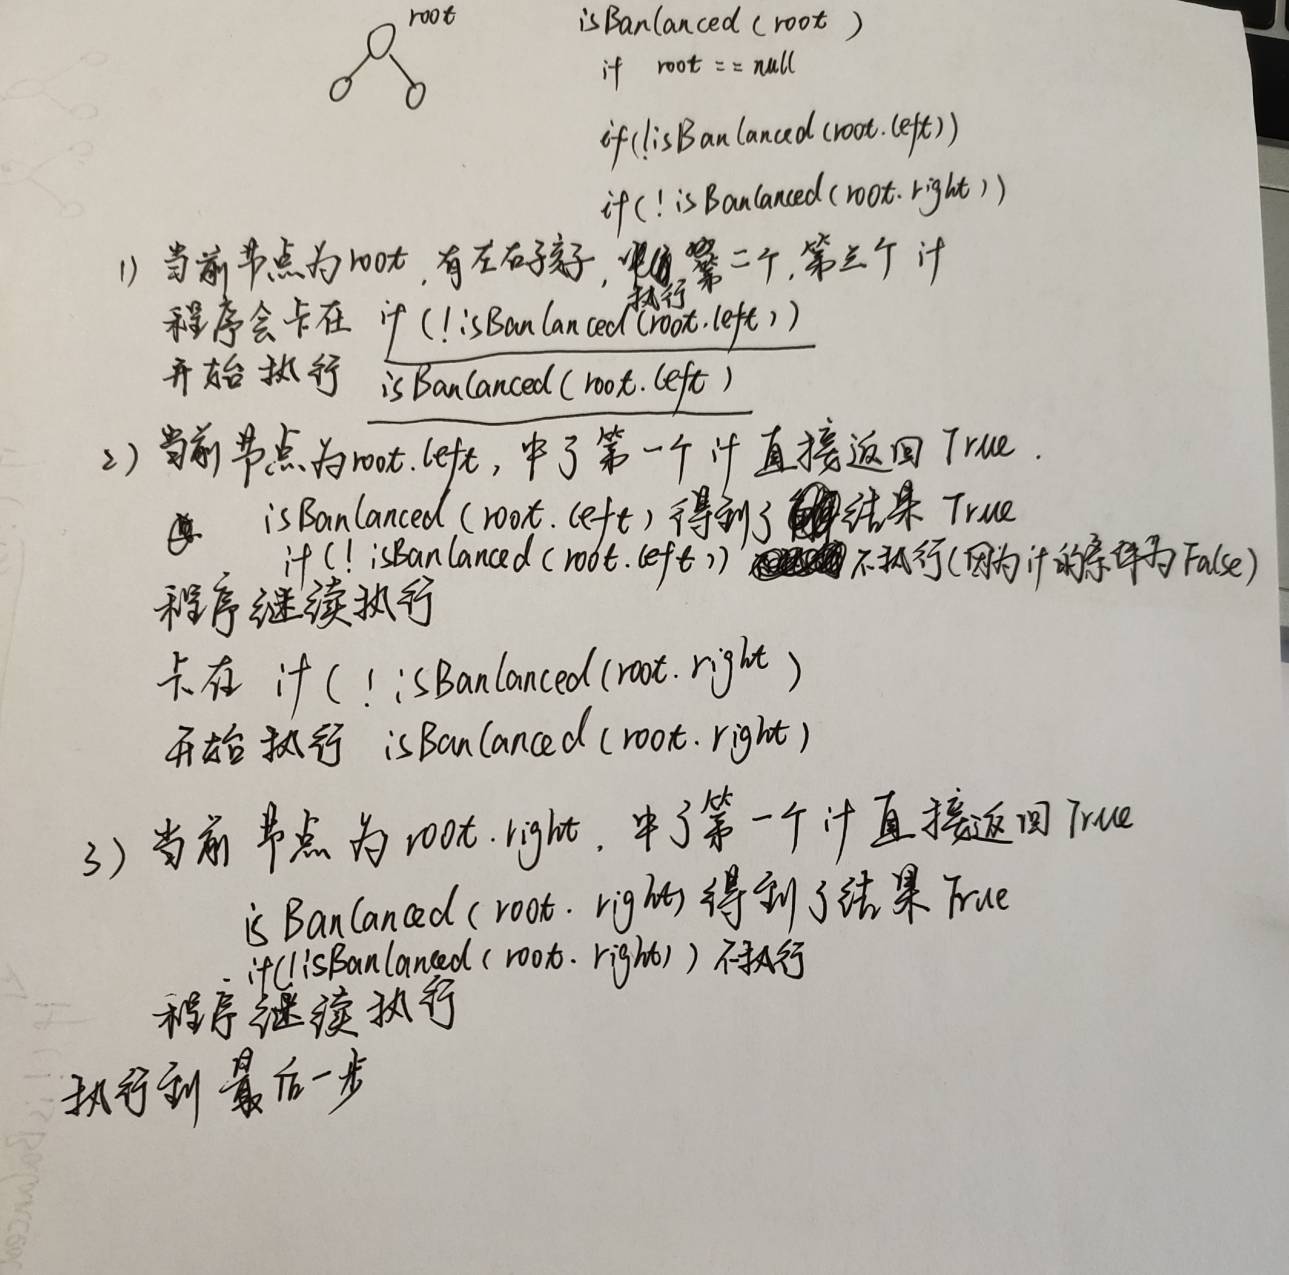 root
isBanlanced (root)
if root == null
if(!isBanlanced(root.left))
if(!isBanlanced(root.right))
1) 当前节点为root,有左右子孩子, 执行第二个,第三个if
程序会卡在 if(!isBanlanced(root.left))
开始执行 isBanlanced(root.left)
2) 当前节点为root.left, 中了第一个if直接返回True.
isBanlanced(root.left)得到了结果True
if(!isBanlanced(root.left)) 不执行(因为if的条件为False)
程序继续执行
卡在 if(!isBanlanced(root.right)
开始执行 isBanlanced(root.right)
3) 当前节点为root.right, 中了第一个if直接返回True
isBanlanced(root.right)得到了结果True
if(!isBanlanced(root.right))不执行
程序继续执行
执行到最后一步